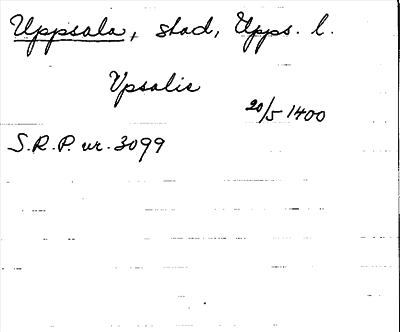 Uppsala, stad, Upps. l.
Vpsalis
20/5 1400
S.R.P. nr. 3099